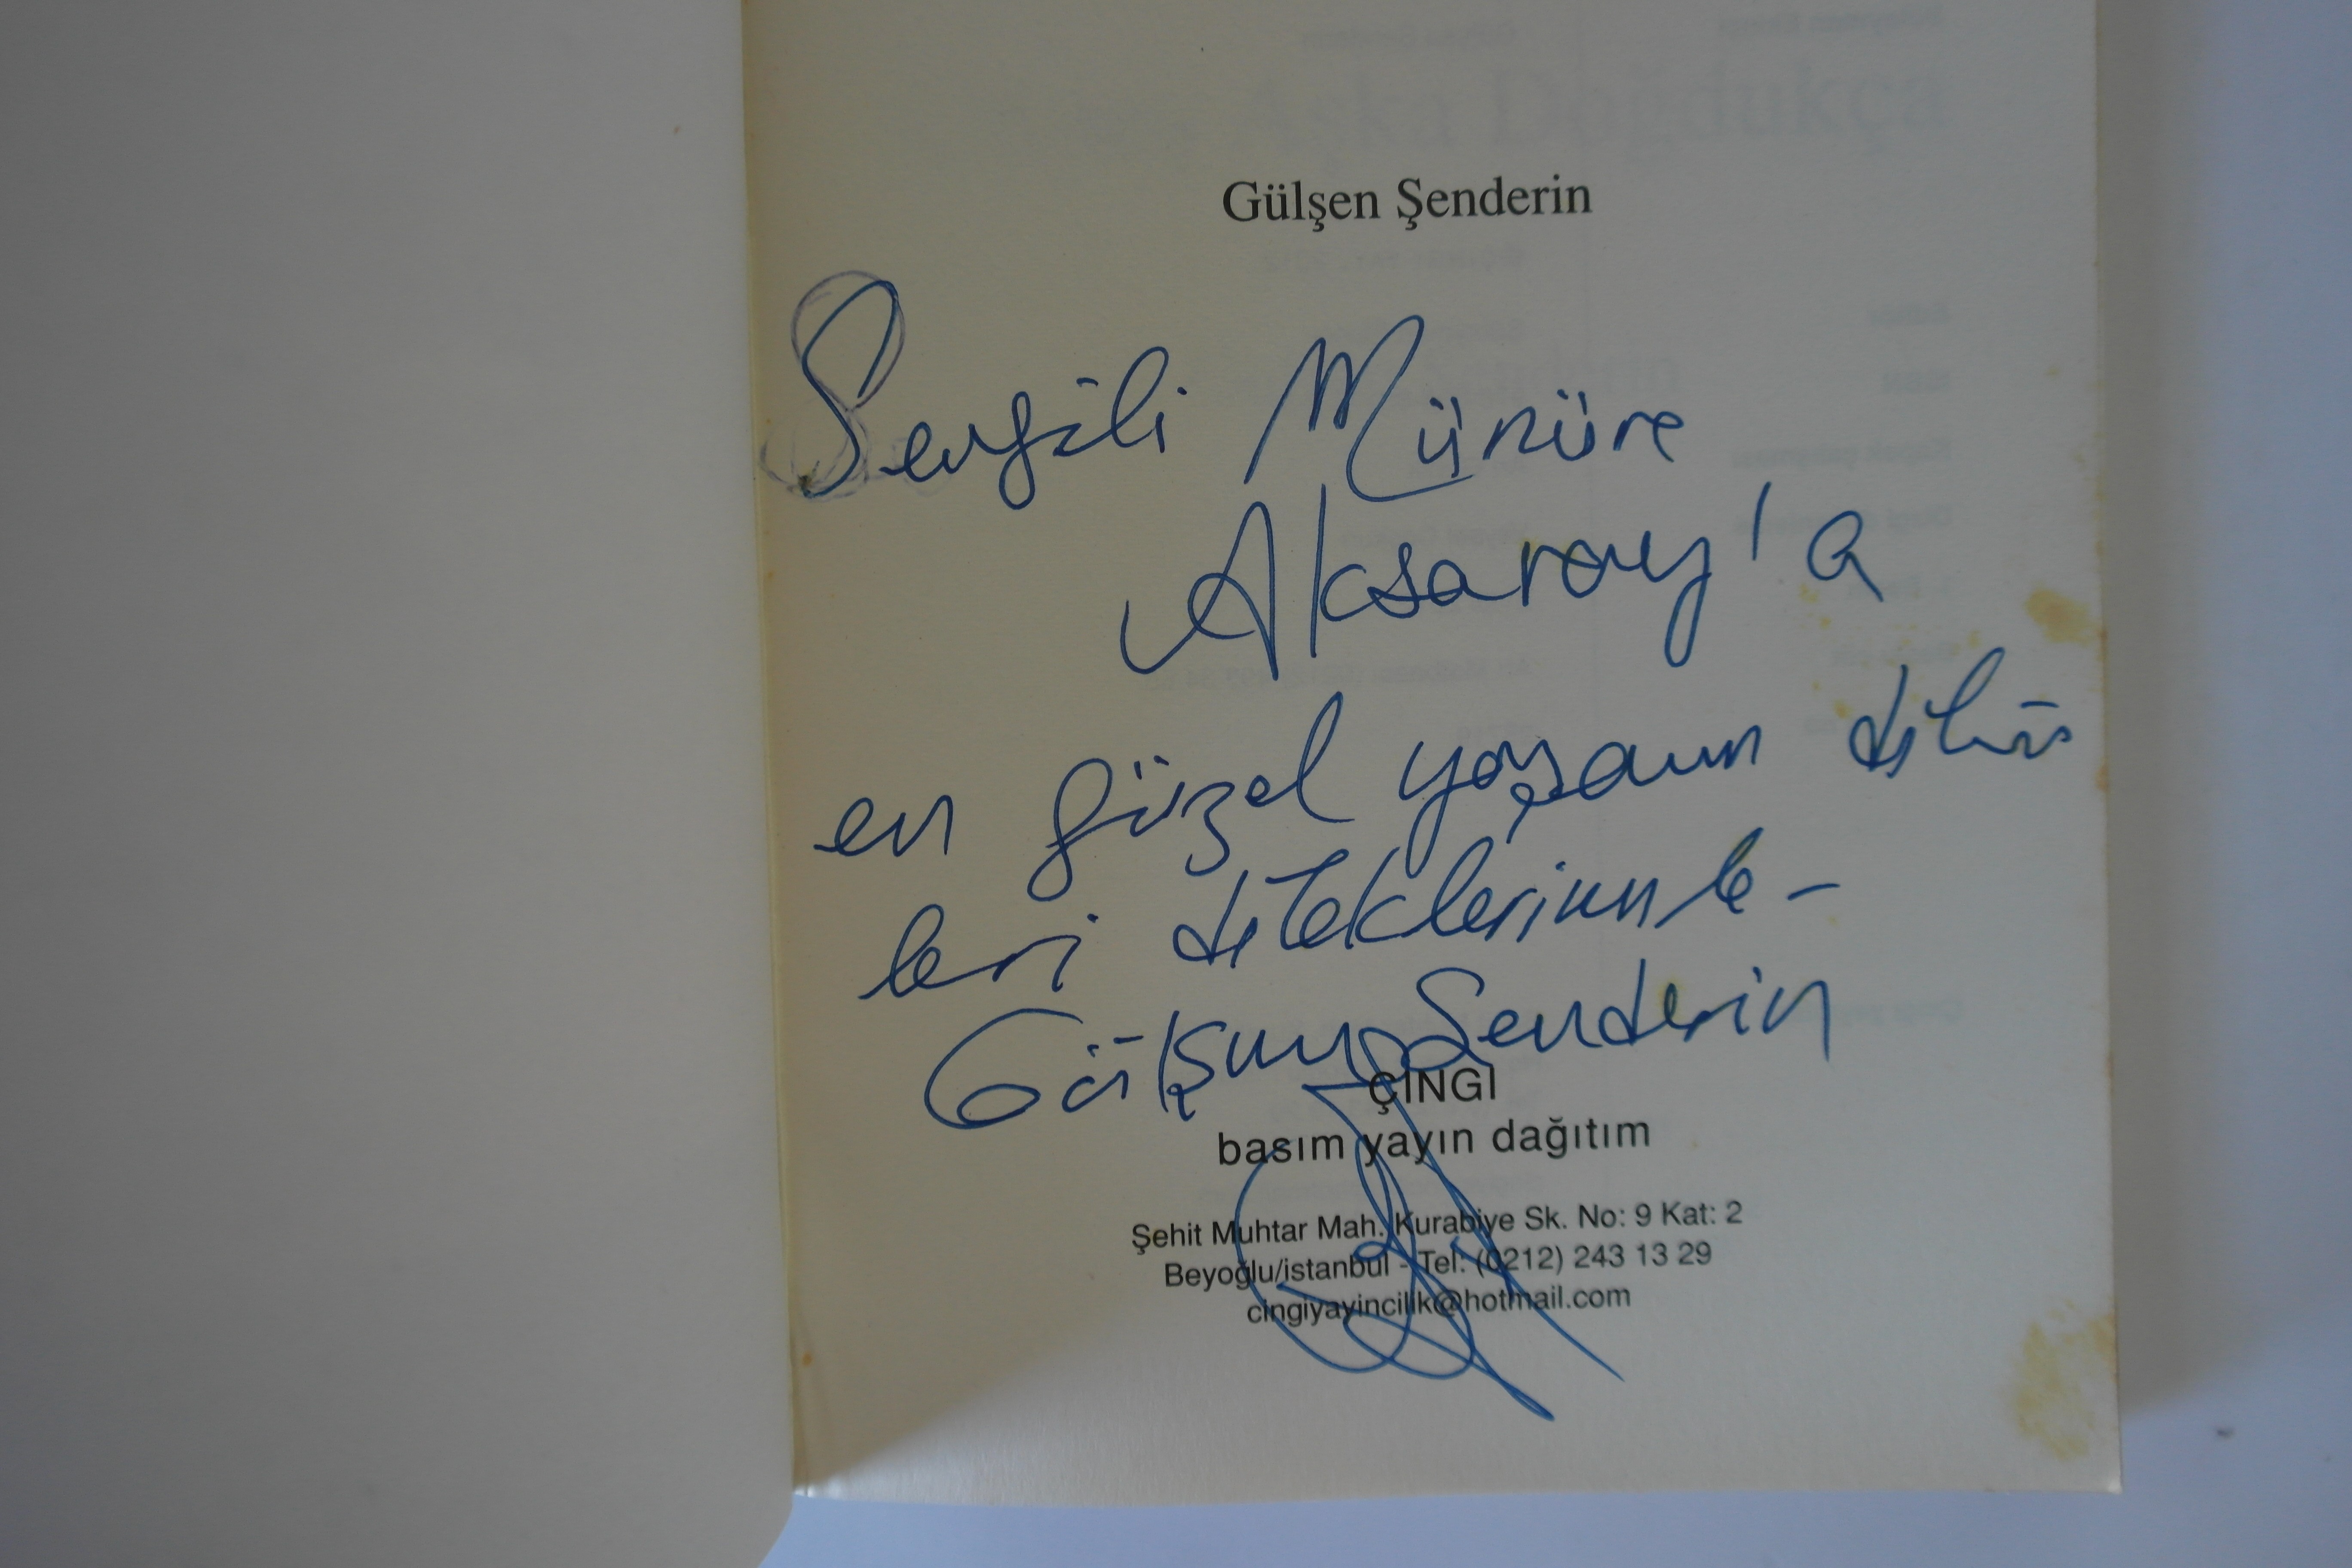 Gülşen Şenderin
Sevgili Münüre
Aksaray'a
en güzel yaşam
leri dileklerimle-
Gülşen Şenderin
ÇİNGİ
basım yayın dağıtım
Şehit Muhtar Mah. Kurabiye Sk. No: 9 Kat: 2
Beyoğlu/istanbul - Tel: (0212) 243 13 29
cingiyayincilik@hotmail.com